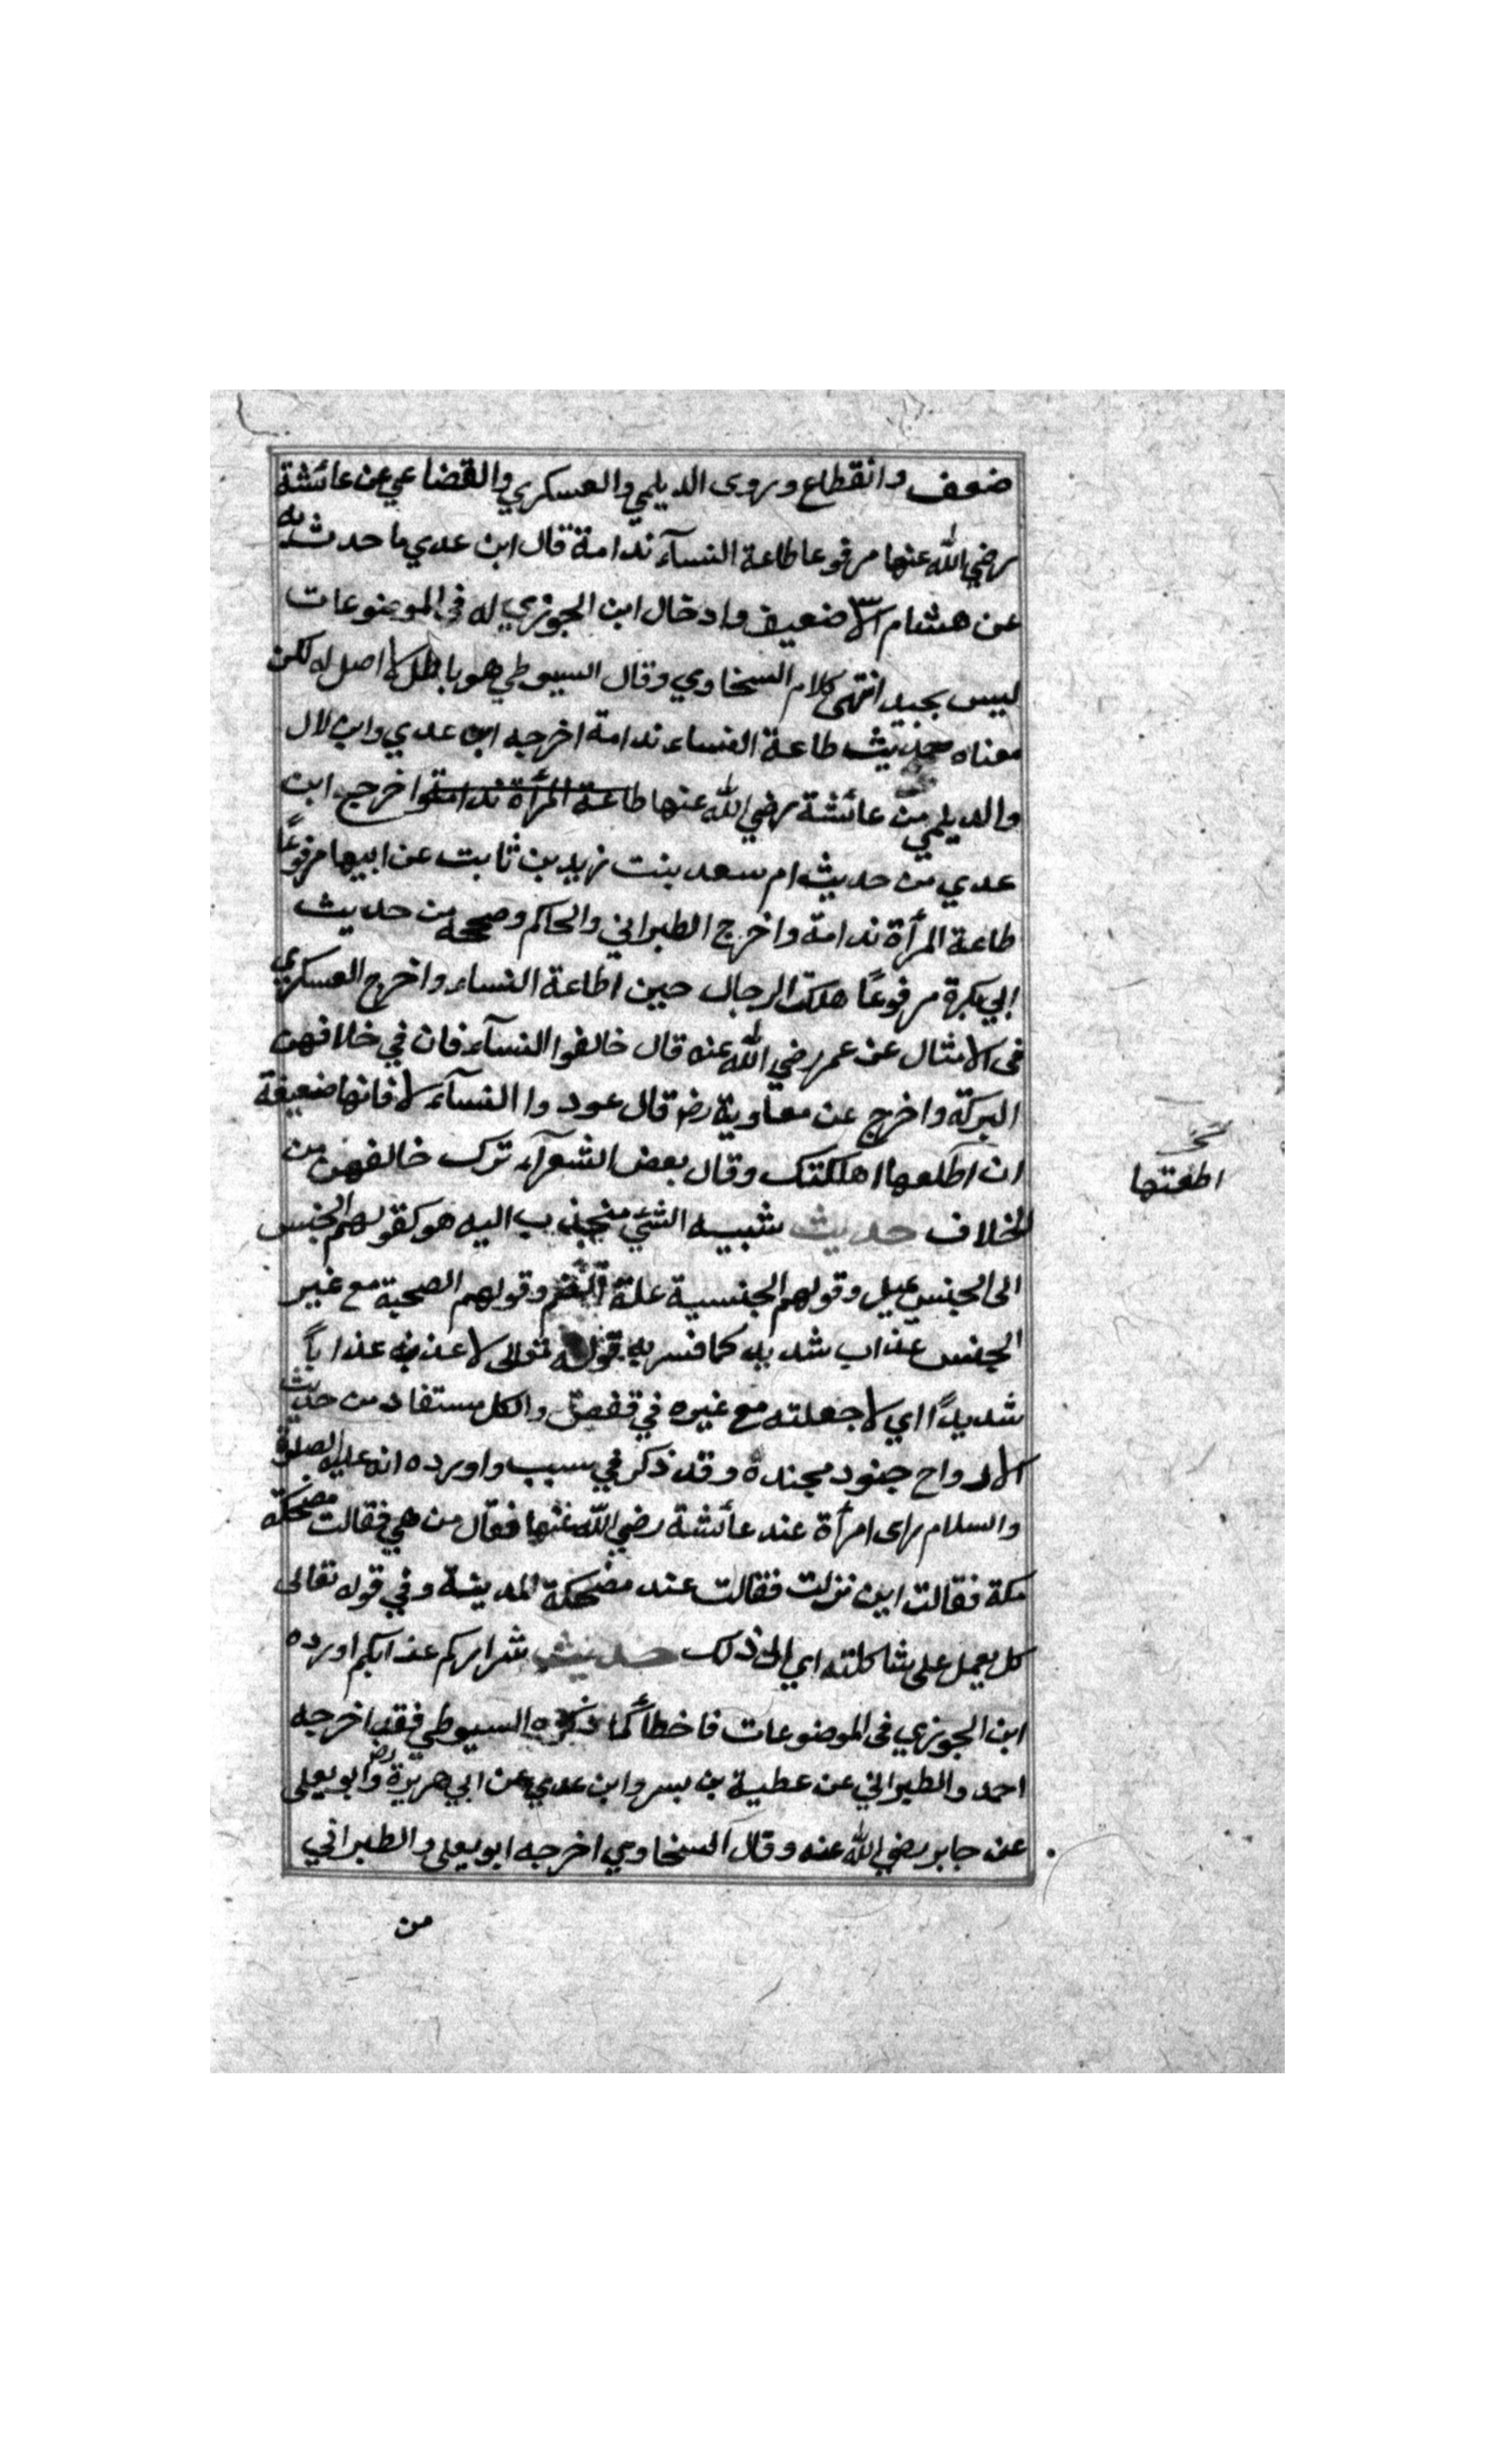 ضعف وانقطاع وروى الديلمي والعسكري والقضاعي عن عائشة
رضي الله عنها مرفوعا طاعة النسآء ندامة قال ابن عدي ما حدث به
عن هشام الا ضعيف وادخال ابن الجوزي له في الموضوعات
ليس بجيد انتهى كلام السخاوي وقال السيوطي هو باطل لا اصل له لكن
معناه حديث طاعة النساء ندامة اخرجه ابن عدي وابن لال
والديلمي من عائشة رضي الله عنها طاعة المرأة ندامة واخرج ابن
عدي من حديث ام سعد بنت زيد بن ثابت عن ابيها مرفوعًا
طاعة المرأة ندامة واخرج الطبراني والحاكم وصححه من حديث
ابي بكرة مرفوعًا هلكت الرجال حين اطاعة النساء واخرج العسكري
في الامثال عن عمر رضي الله عنه قال خالفوا النسآء فان في خلافهن
البركة واخرج عن معاوية رض قال عودوا النسآء لا فانها ضعيفة
ان اطلعها اهلكتك وقال بعض الشعرآء ترك خالفهن من
الخلاف حديث شبيه الشئ منجذب اليه هو كقولهم الجنس
الى الجنس يميل وقولهم الجنسية علة الضم وقولهم الصحبة مع غير
الجنس عذاب شديد كما فسر به قوله تعالى لاعذبنه عذابًا
شديدًا اي لاجعلته مع غيره في قفص والكل مستفاد من حديث
الارواح جنود مجندة وقد ذكر في سبب واورده انه عليه الصلوة
والسلام راى امرأة عند عائشة رضي الله عنها فقال من هي فقالت مضحكة
مكة فقالت اين نزلت فقالت عند مضحكة المدينة وفي قوله تعالى
كل يعمل على شاكلته اي الى ذلك حديث شراركم عذابكم اورده
ابن الجوزي في الموضوعات فاخطأ كما ذكره السيوطي فقد اخرجه
احمد والطبراني عن عطية بن بسر وابن عدي عن ابي هريرة رض وابو يعلى
عن جابر رضي الله عنه وقال السخاوي اخرجه ابو يعلى والطبراني
من
نسخ
اطعتها